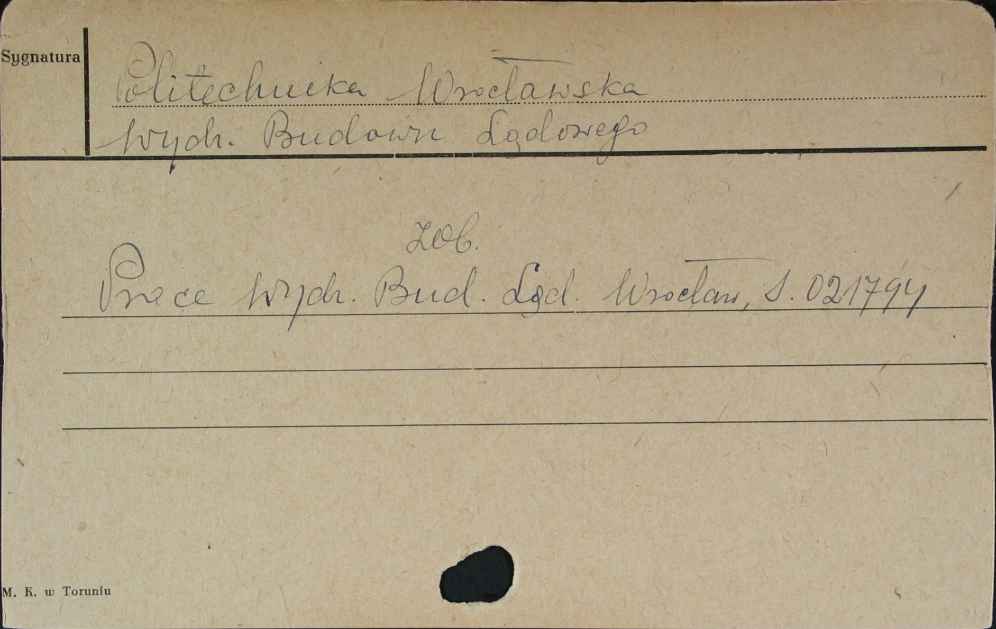 Sygnatura
Politechnika Wrocławska
Wydz. Budown Lądowego
zob.
Prace Wydz. Bud. Ląd. Wrocław, S. 021794
M. K. w Toruniu